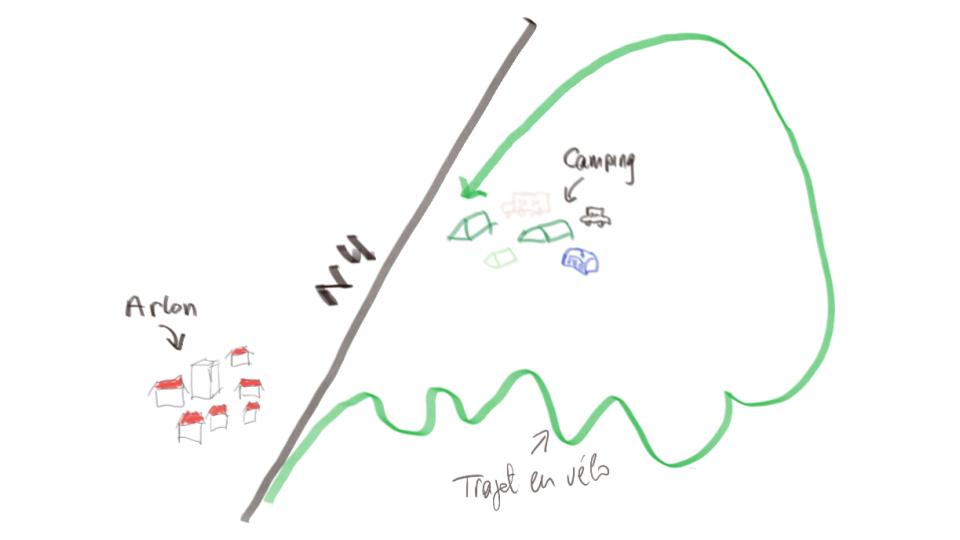 Camping
N4
Arlon
Trajet en vélo